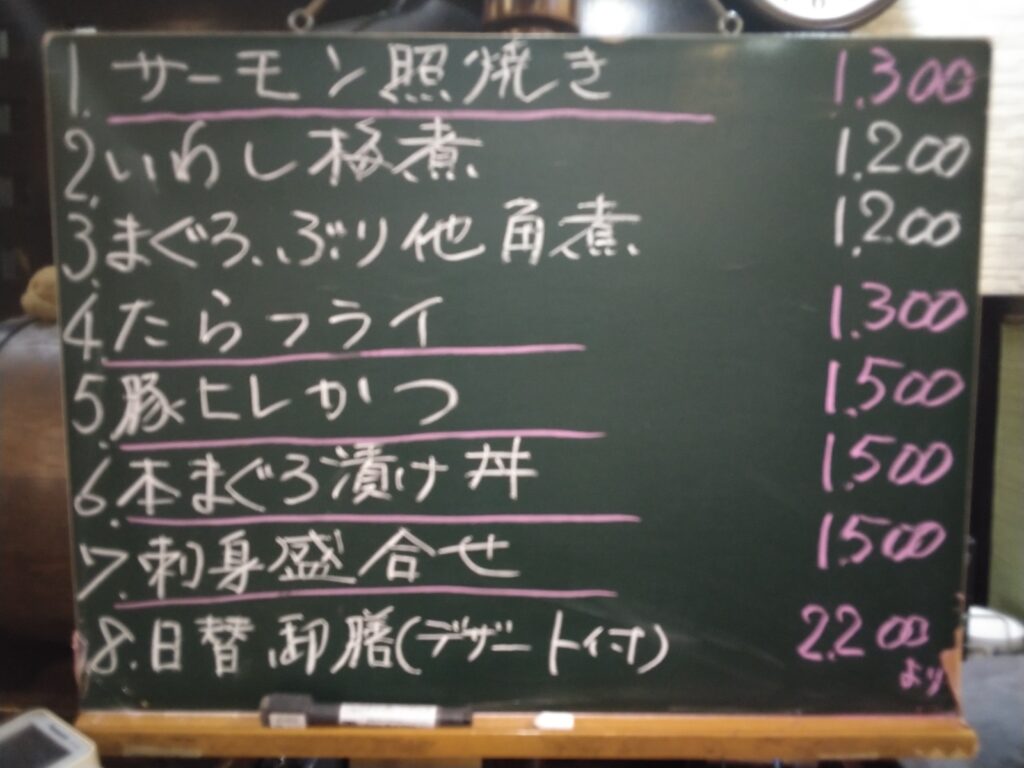 1. サーモン照焼き 1.300
2. いわし梅煮 1.200
3. まぐろ、ぶり他角煮 1.200
4. たらフライ 1.300
5. 豚ヒレかつ 1.500
6. 本まぐろ漬け丼 1.500
7. 刺身盛合せ 1.500
8. 日替御膳(デザート付) 2.200
より